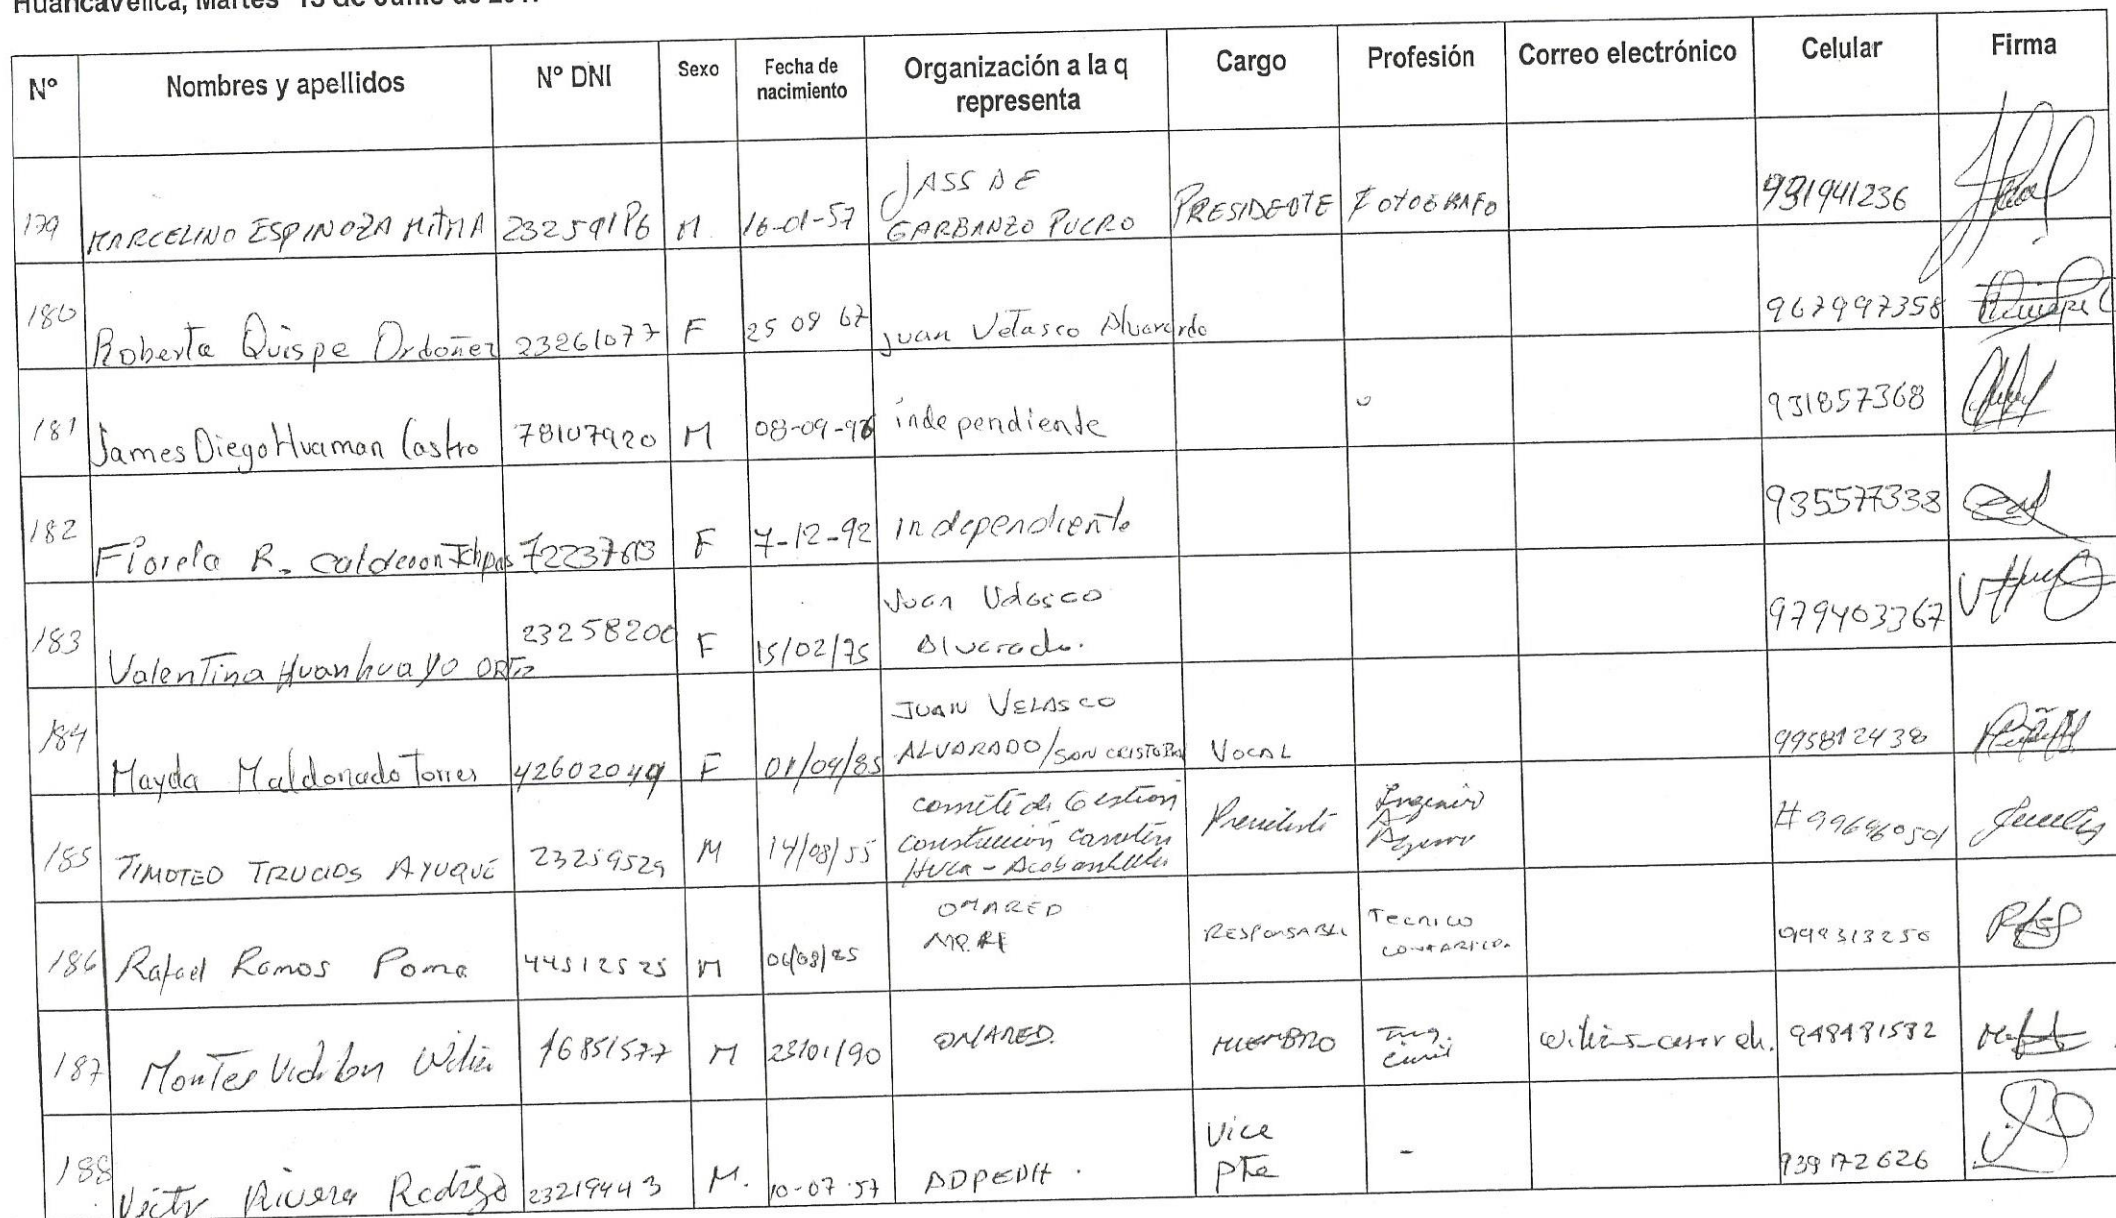 Huancavelica, Martes 13 de Junio de
N° Nombres y apellidos N° DNI Sexo Fecha de nacimiento Organización a la q representa Cargo Profesión Correo electrónico Celular Firma
179 MARCELINO ESPINOZA MITMA M 16-01-57 JASS DE GARBANZO PUCRO PRESIDENTE FOTOGRAFO 931941236
180 Roberta Quispe Ordoñez 23261077 F 25 09 67 Juan Velasco Alvarado 967997358
181 James Diego Huaman Castro 78107920 M independiente 931857368
182 Fiorela R. Calderon F 7-12-92 independiente 935577338
183 Valentina Huanhuayo ORTIZ 23258200 F 15/02/75 Juan Velasco Alvarado. 979403367
184 Mayda Maldonado Torres F JUAN VELASCO ALVARADO/SAN CRISTOBAL VOCAL 995812438
185 TIMOTEO TRUCIOS AYUQUE 23259529 M 14/08/55 comité de Gestion Presidente
186 Rafael Ramos Poma 44512525 M OMARED RESPONSABLE Tecnico 999313250
187 Montes M 23/01/90 OMARED. MIEMBRO Ing. Civil 948481532
188 Victor Rivera 23219443 M. 10-07-57 ADPEDH. Vice Pte - 939172626